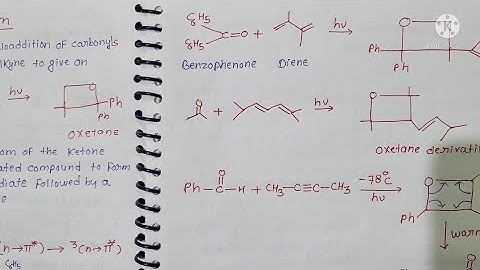 loaddition of carbonyls
lkyne to give an
hν
O
Ph
Ph
oxetane
om of the Ketone
ated compound to form
diate followed by a
(n→π*) → ³(n→π*)
C₆H₅
C₆H₅
C=O + hν
O
Ph
Ph
Benzophenone Diene
O
+ hν
O
Oxetane deriva
O
Ph-C-H + CH₃-C≡C-CH₃ -78°C
hν
O
Ph
warm